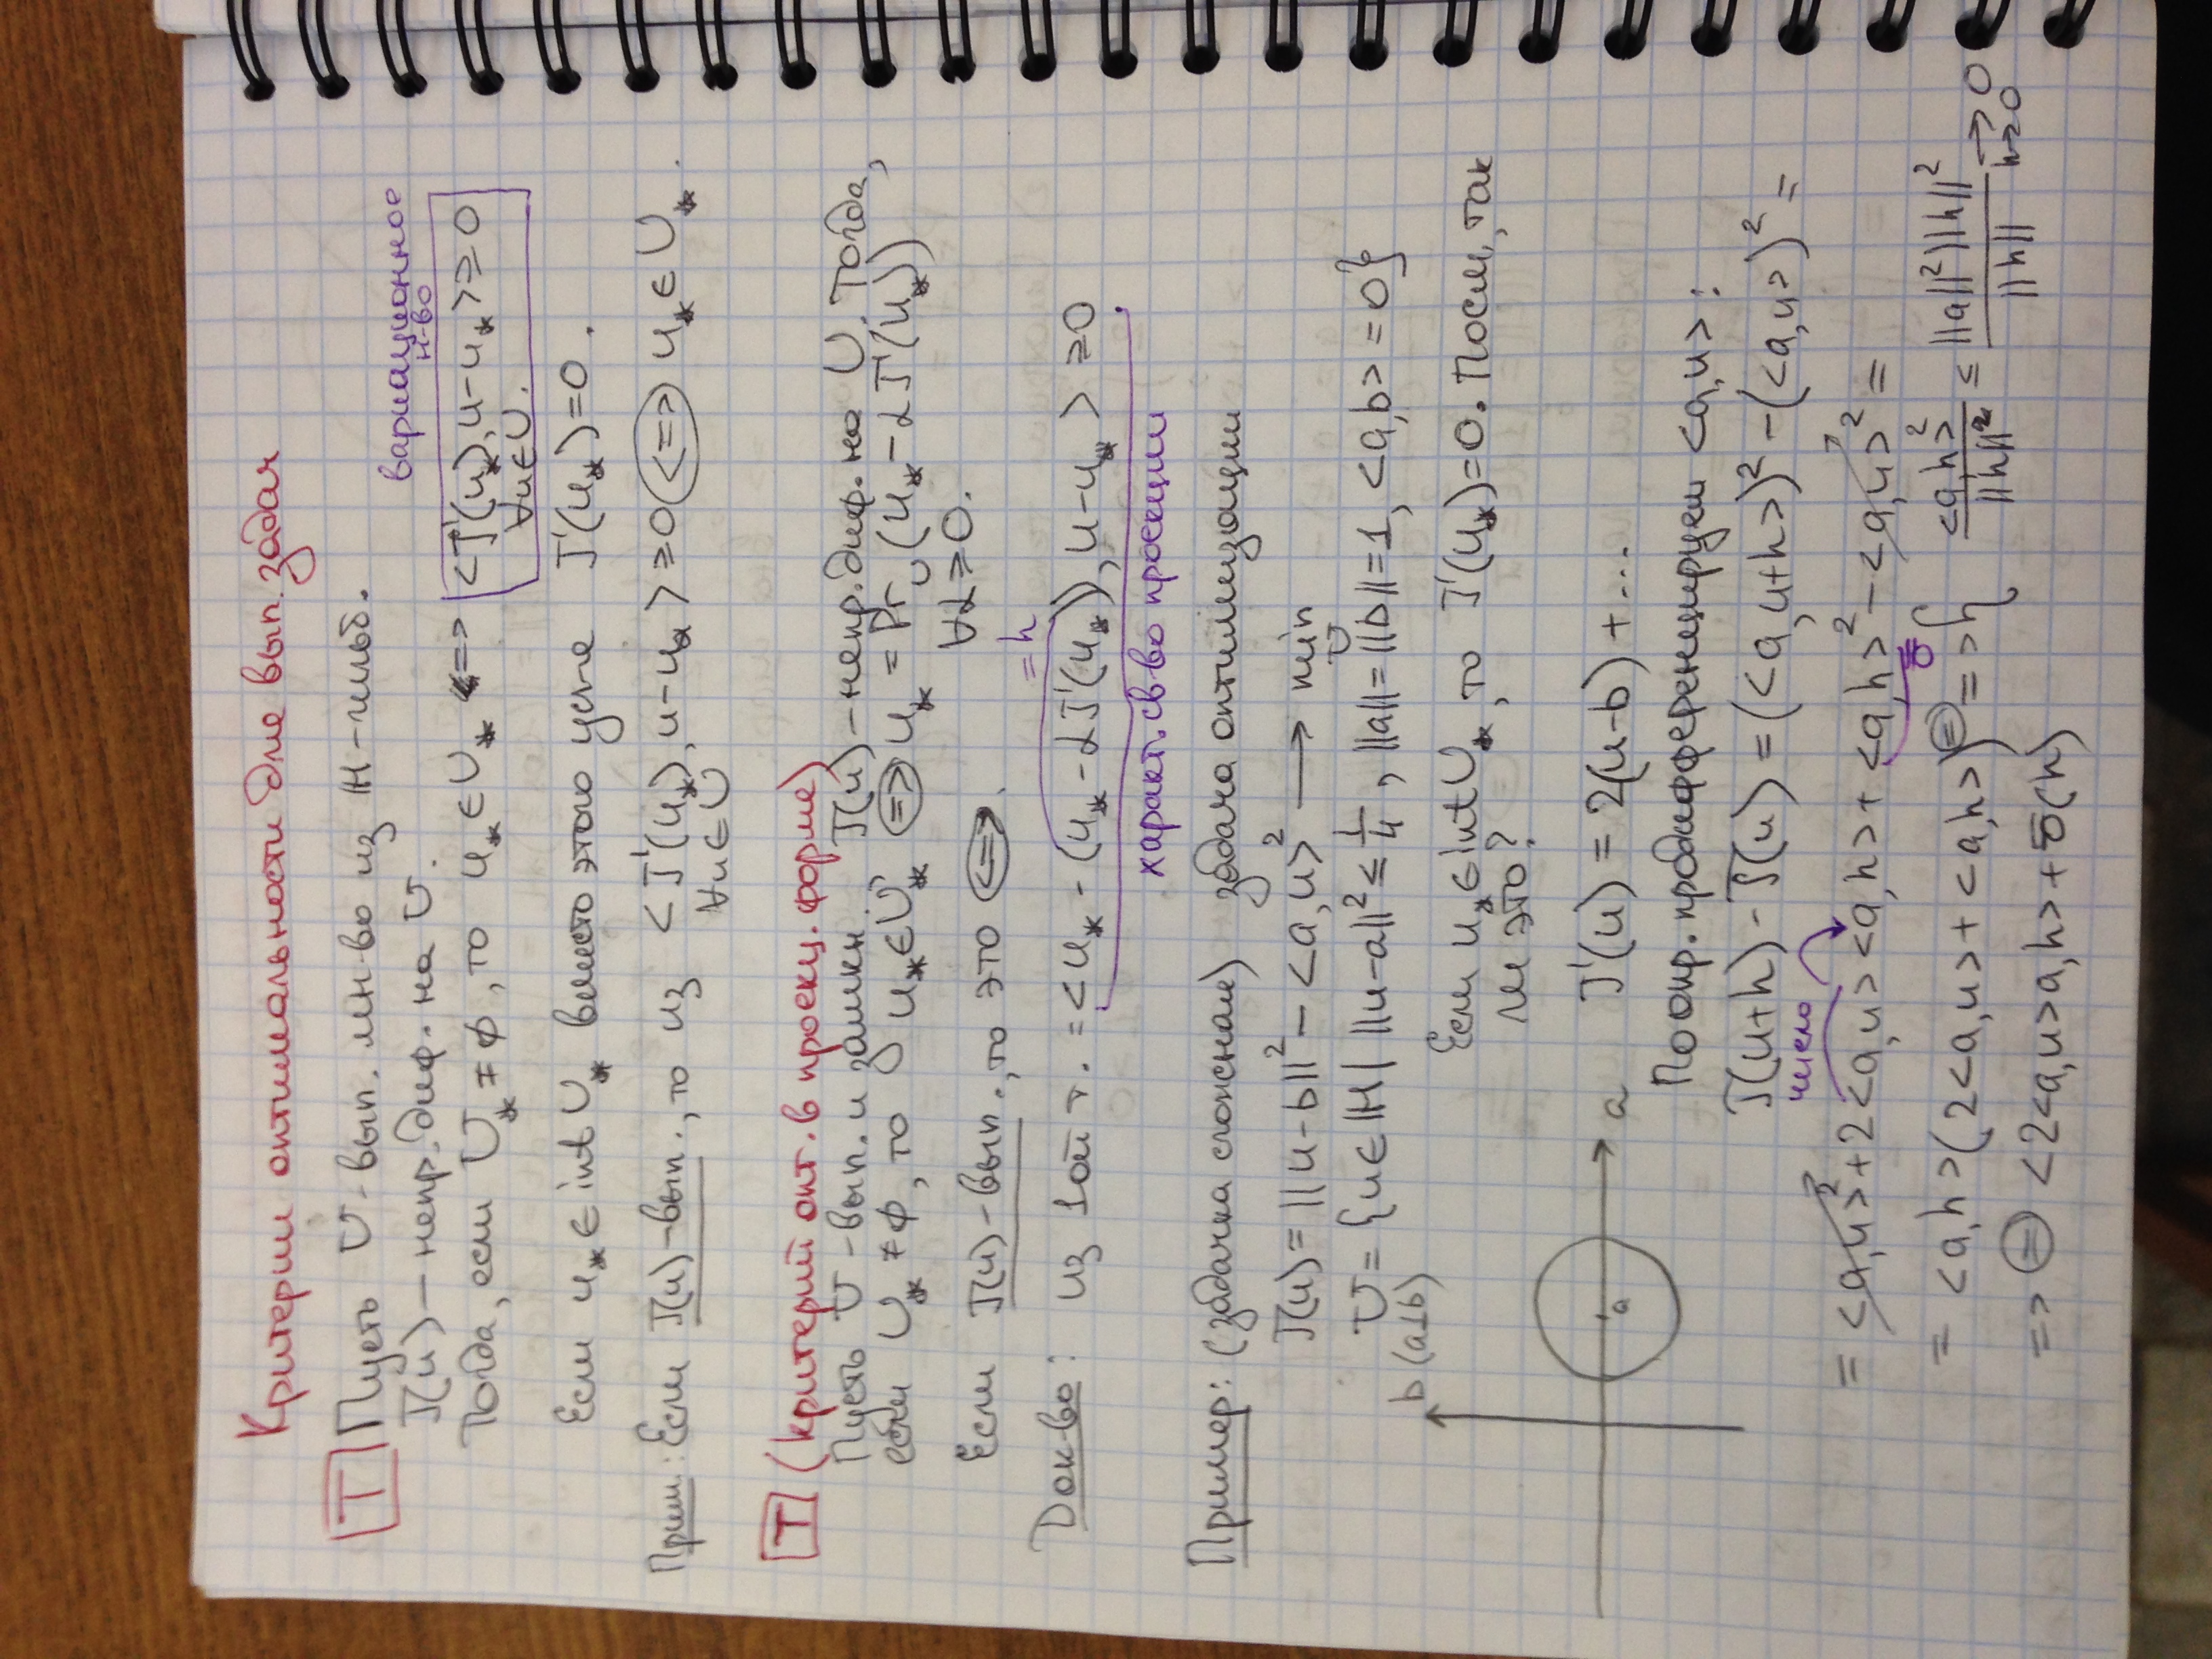 Критерии оптимальности для вып. задач
Т Пусть U-вып. мн-во из H-гильб.
J(u) – непр. диф. на U.
вариационное
н-во
Тогда, если U_* ≠ ∅, то u_* ∈ U_* <=> <J'(u_*), u-u_*> ≥ 0
∀u∈U.
Если u_* ∈ int U_* вместо этого усл-е J'(u_*)=0.
Прим: Если J(u)-вып., то из <J'(u_*), u-u_*> ≥ 0 <=> u_* ∈ U_*.
∀u∈U
Т (критерий опт. в проекц. форме)
Пусть U-вып. и замкн. J(u)-непр. диф. на U. Тогда,
если U_* ≠ ∅, то u_* ∈ U_* => u_* = Pr_U (u_* - αJ'(u_*))
∀α≥0.
Если J(u)-вып., то это <=>.
=h
Док-во: из 1ой т. = <u_* - (u_* - αJ'(u_*)), u-u_*> ≥ 0.
характ. св-во проекции
Пример: (задачка сложная) задача оптимизации
J(u) = ||u-b||² - <a,u>² → min
U
U = {u∈H | ||u-a||² ≤ 1/4, ||a||=||b||=1, <a,b>=0}
b (a⊥b)
Если u_* ∈ int U_*, то J'(u_*)=0. Посм, так
ли это?
a
a
J'(u) = 2(u-b) + ...
По опр. продифференцируем <a,u>:
J(u+h) - J(u) = (<a,u+h>)² - (<a,u>)² =
число
= <a,u>² + 2<a,u><a,h> + <a,h>² - <a,u>² =
= <a,h>(2<a,u> + <a,h>) = => { <a,h>²/||h|| ≤ ||a||²||h||²/||h|| → 0
h→0
=> = <2<a,u>a,h> + o(h)